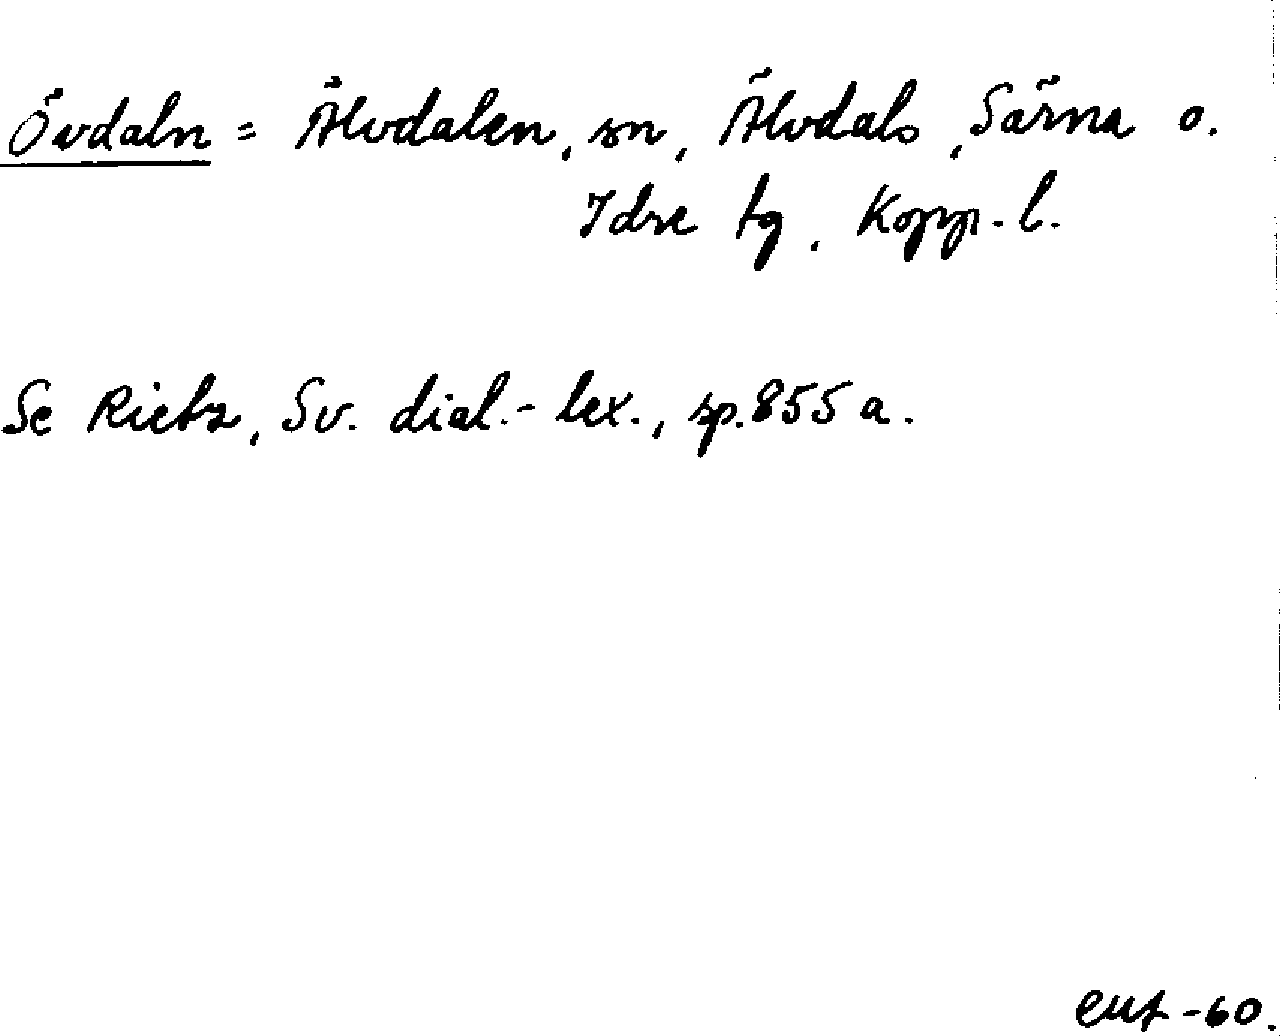 Övdaln = Älvdalen, sn, Älvdals, Särna o.
Idre tg, Kopp. l.
Se Rietz, Sv. dial.-lex., sp. 855 a.
-60.